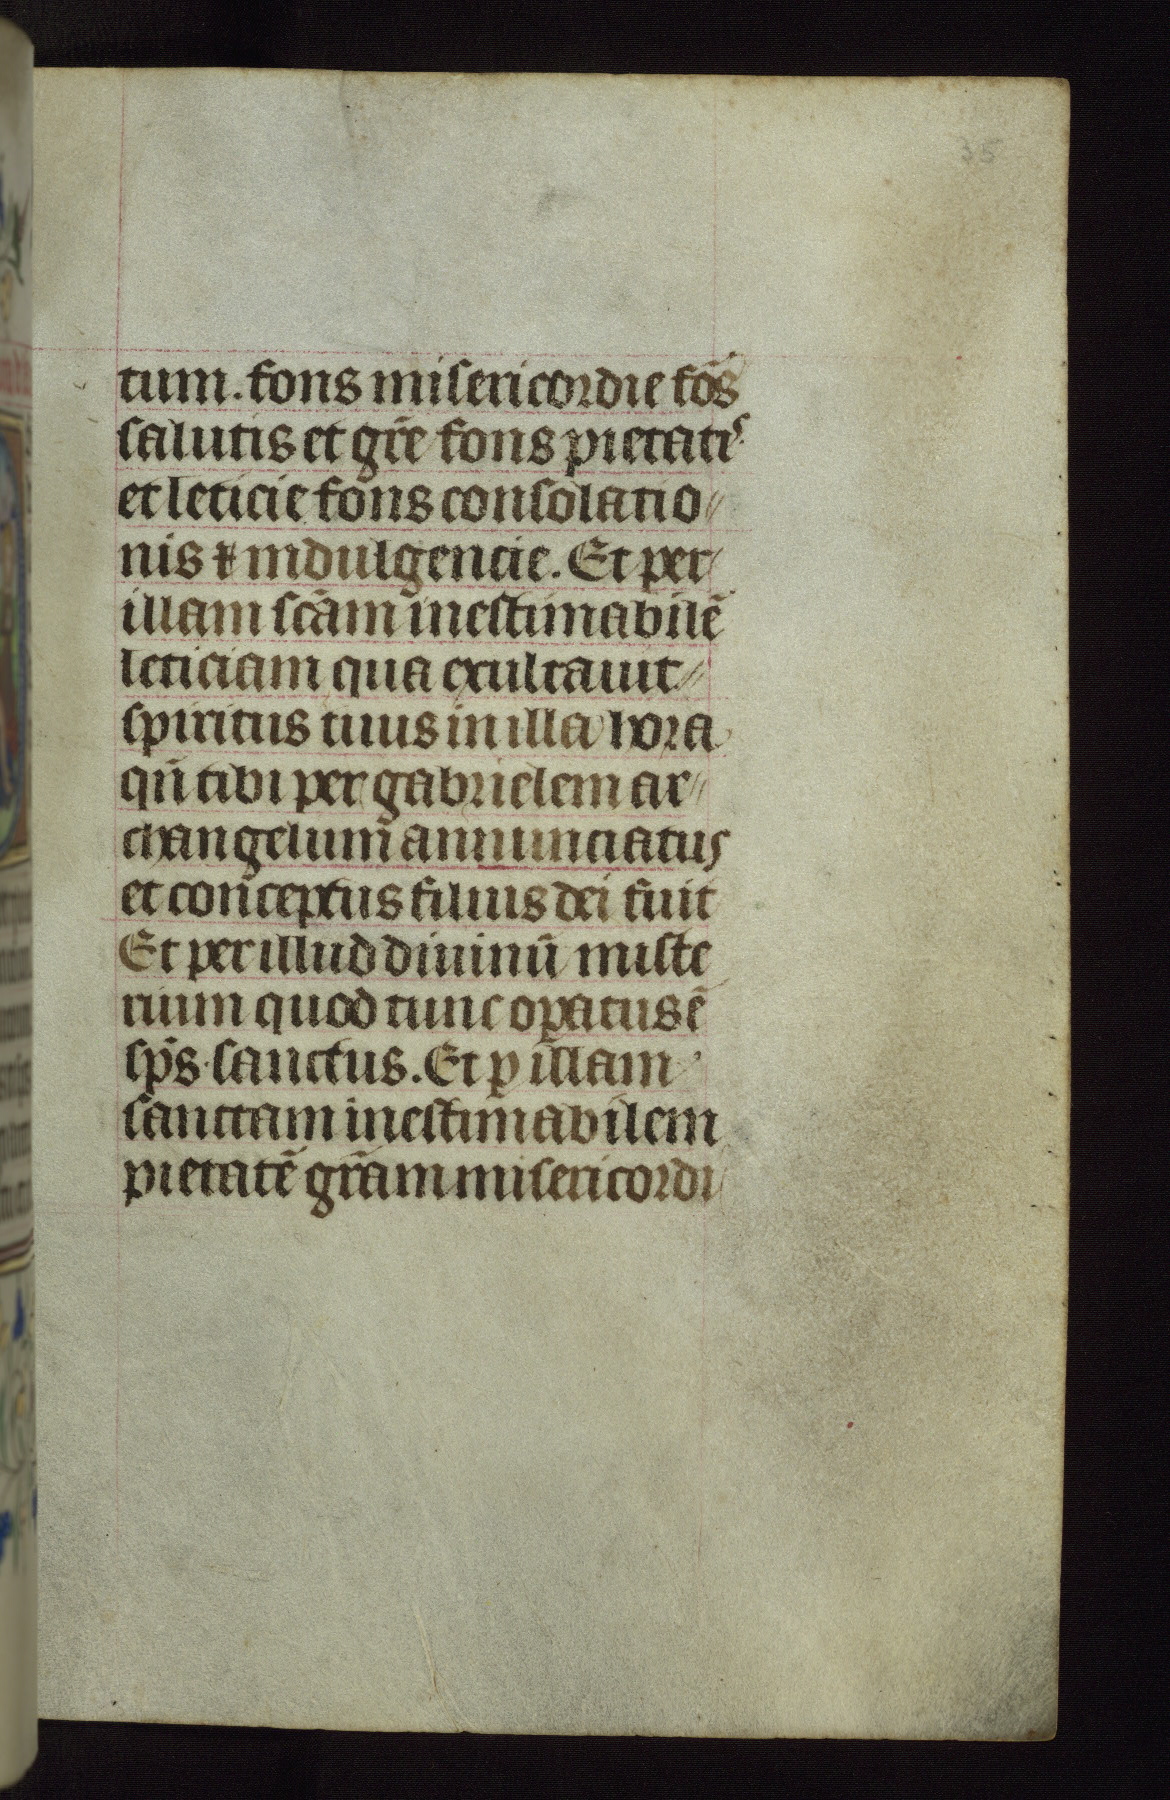 35
tum. fons misericordie fōs
salutis et gr̄e fons pietatis
et leticie fons consolatio
nis ⁊ indulgencie. Et per
illam scām inestimabilē
leticiam qua exultauit
spiritus tuus in illa hora
qn̄ tibi per gabrielem ar
changelum annunciatus
et conceptus filius dei fuit
Et per illud diuinū miste
rium quod tunc opatus ē
sp̄s sanctus. Et ꝑ illam
sanctam inestimabilem
pietatē gr̄am misericordi